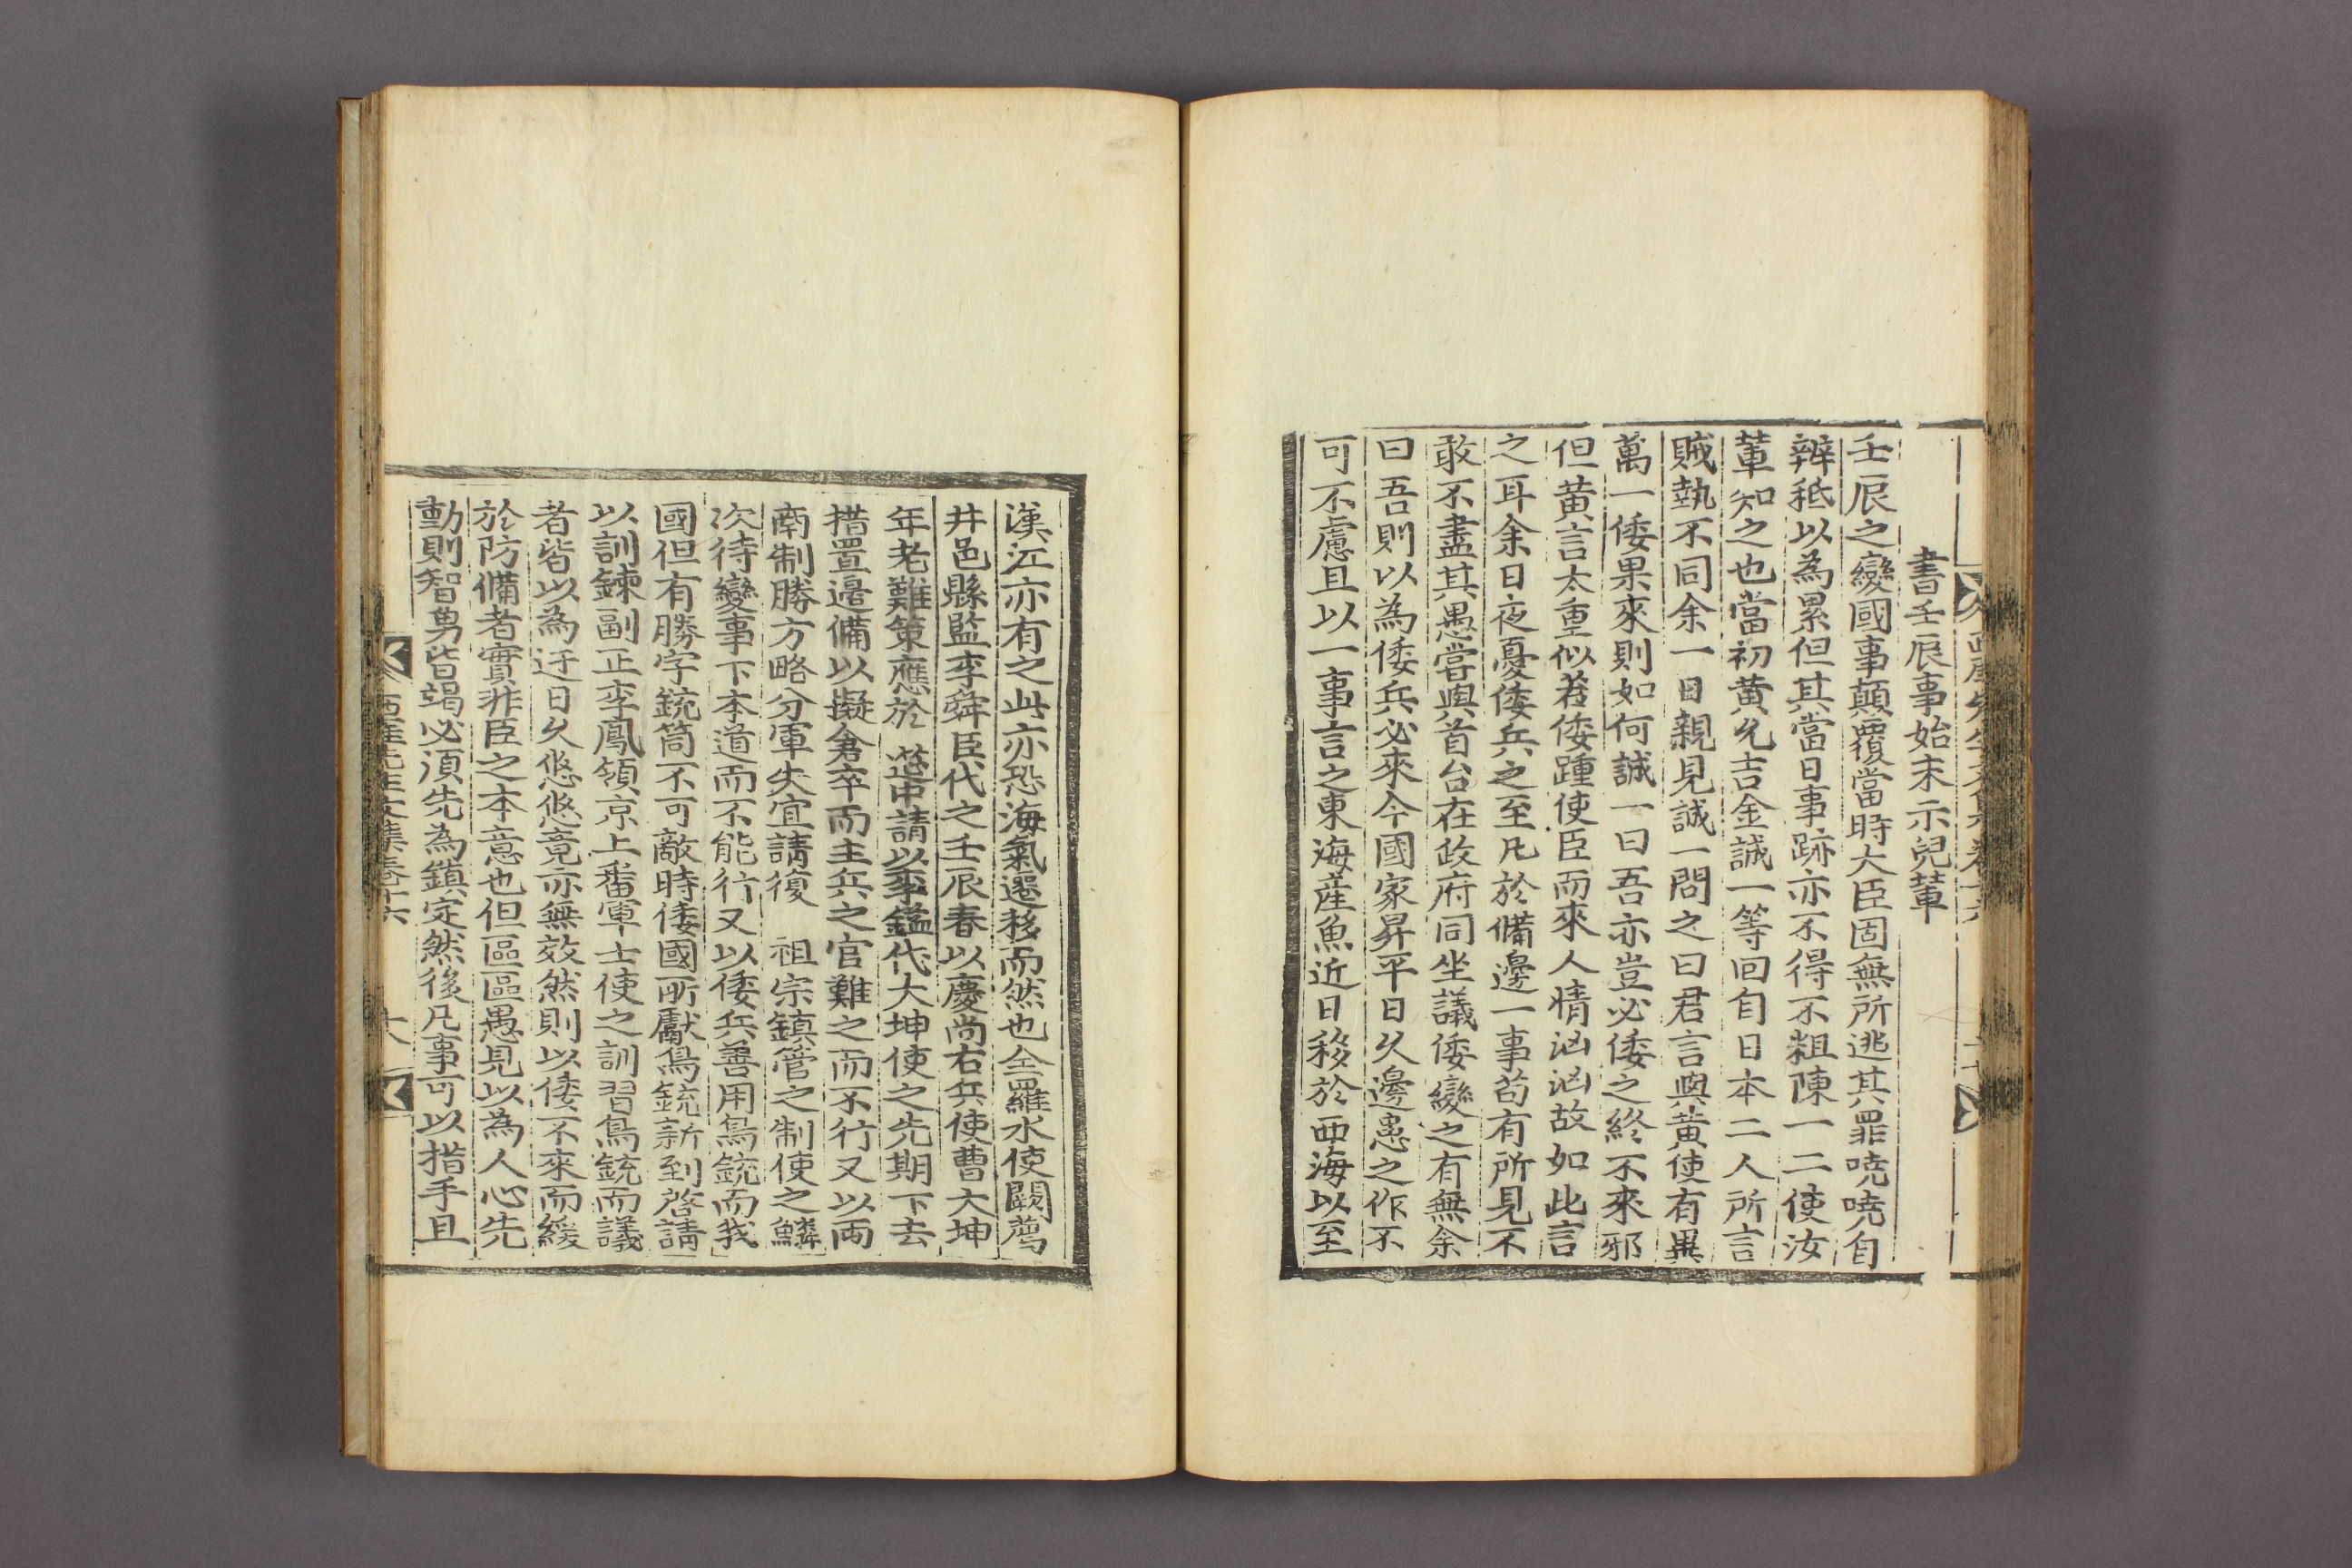 書壬辰事始末示兒輩
壬辰之變國事顛覆當時大臣固無所逃其罪嘵嘵自
辨秪以為累但其當日事跡亦不得不粗陳一二使汝
輩知之也當初黃允吉金誠一等回自日本二人所言
賊執不同余一日親見誠一問之曰君言與黃使有異
萬一倭果來則如何誠一曰吾亦豈必倭之終不來邪
但黃言太重似若倭踵使臣而來人情洶洶故如此言
之耳余日夜憂倭兵之至凡於備邊一事苟有所見不
敢不盡其愚嘗與首台在政府同坐議倭變之有無余
曰吾則以為倭兵必來今國家昇平日久邊患之作不
可不慮且以一事言之東海產魚近日移於西海以至
漢江亦有之此亦恐海氣遷移而然也全羅水使闕薦
井邑縣監李舜臣代之壬辰春以慶尚右兵使曹大坤
年老難策應於 筵中請以李鎰代大坤使之先期下去
措置邊備以擬倉卒而主兵之官難之而不行又以兩
南制勝方略分軍失宜請復 祖宗鎮管之制使之鱗
次待變事下本道而不能行又以倭兵善用鳥銃而我
國但有勝字銃筒不可敵時倭國所獻鳥銃新到啓請
以訓鍊副正李鳳領京上番軍士使之訓習鳥銃而議
者皆以為迂日久悠悠竟亦無效然則以倭不來而緩
於防備者實非臣之本意也但區區愚見以為人心先
動則智勇皆竭必須先為鎮定然後凡事可以措手且
西厓先生文集卷十六